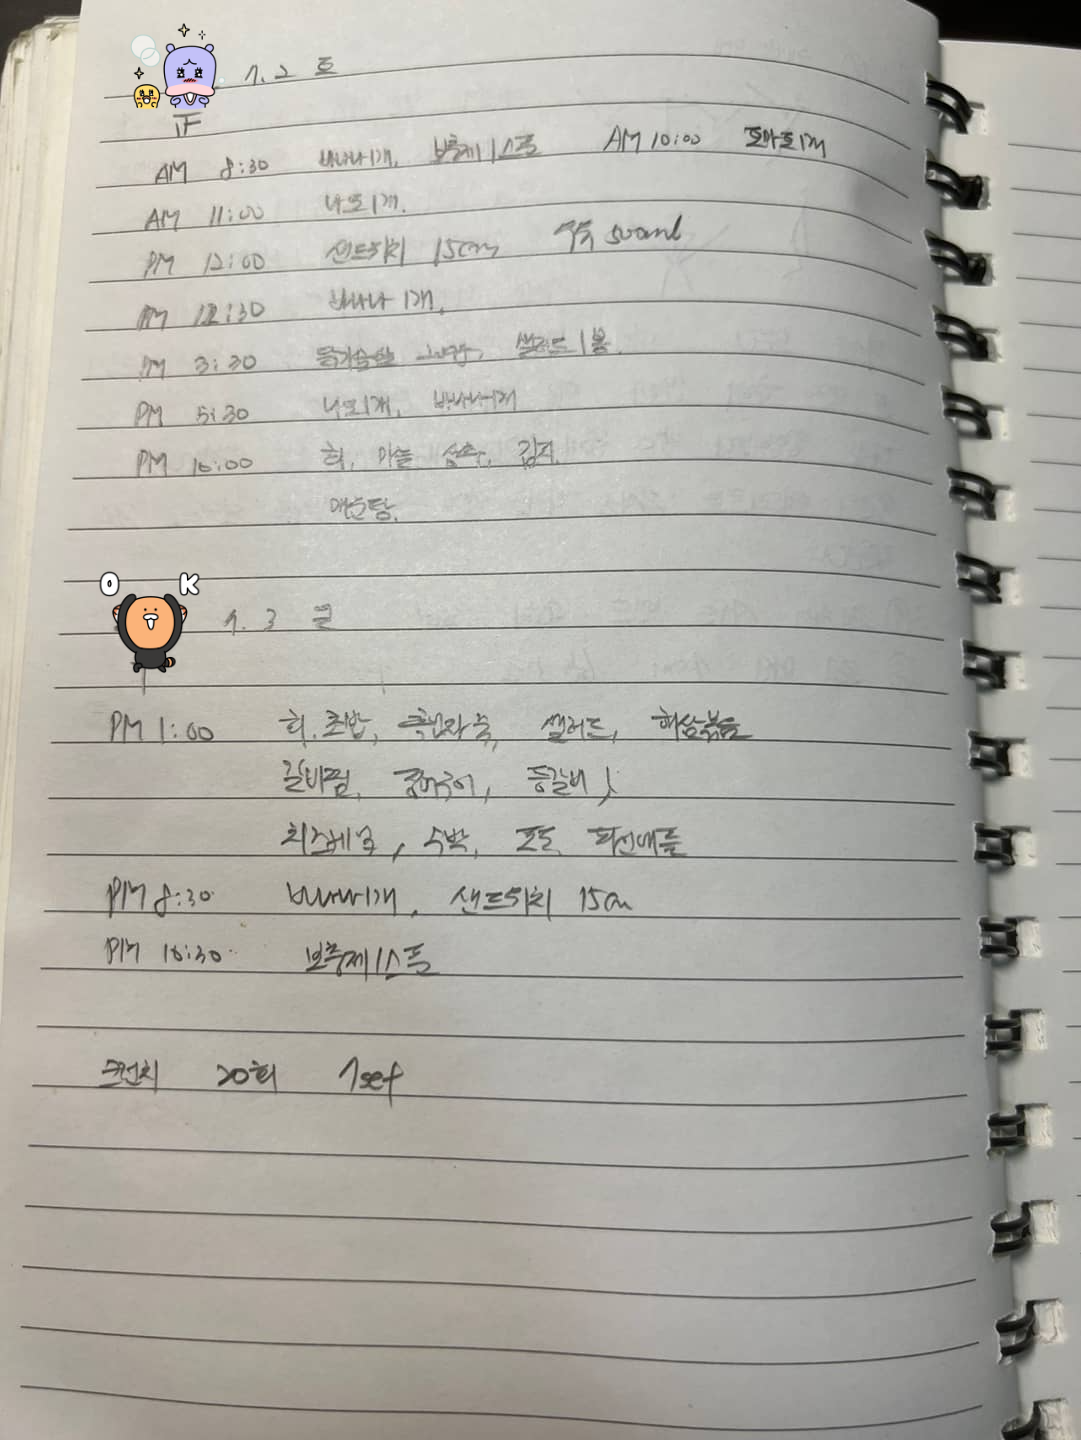 O K
正
AM 8:30 바나나1개, 보충제1스푼 AM 10:00 토마토1개
AM 11:00 1개.
PM 12:00 샌드위치 15cm 500ml
PM 12:30 바나나 1개.
PM 3:30 닭가슴살 샐러드1봉.
PM 5:30 1개, 바나나1개
PM 10:00 회, 마늘 상추, 김치.
매운탕.
3
PM 1:00 회.초밥, 죽, 샐러드, 해삼볶음
갈비찜, 등갈비,
치즈케익, 수박, 포도, 파인애플
PM 8:30 바나나1개, 샌드위치 15cm
PM 10:30 보충제1스푼
크런치 20회 1set